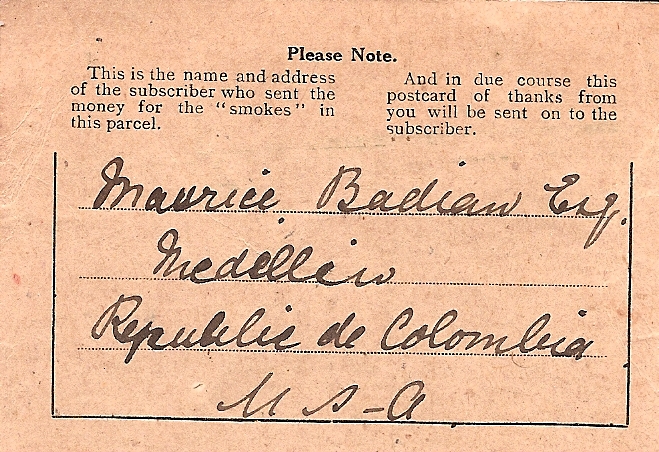 Please Note.
This is the name and address
of the subscriber who sent the
money for the "smokes" in
this parcel.
And in due course this
postcard of thanks from
you will be sent on to the
subscriber.
Maurice Badian Esq.
Medellin
Republic de Colombia
U S-A